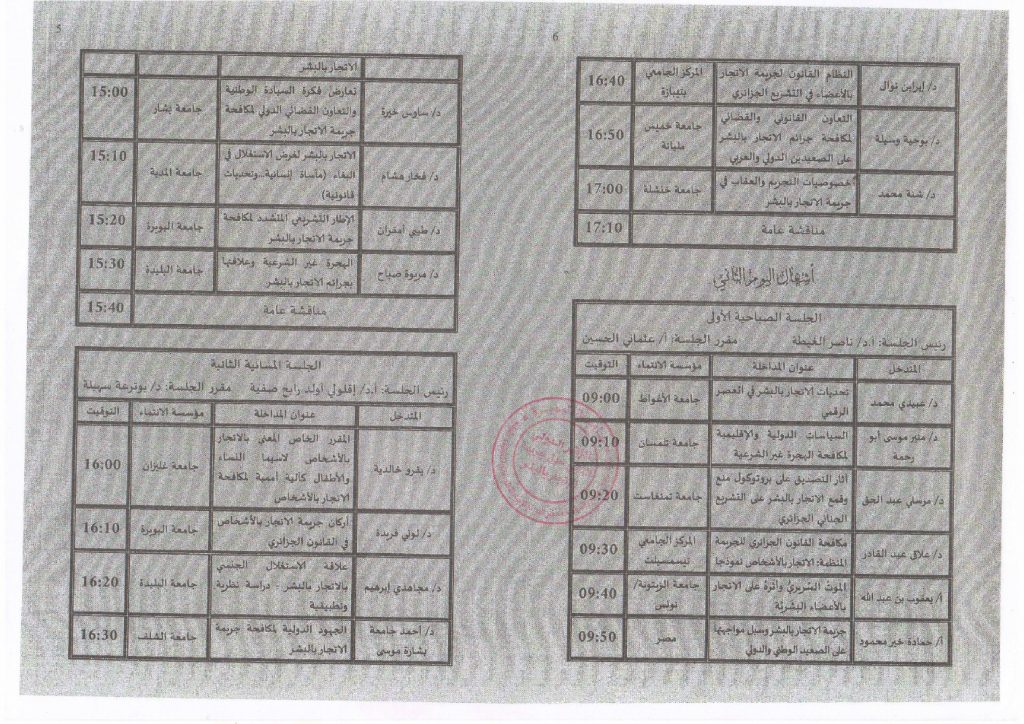 5
الاتجار بالبشر
د/ ساوس خيرة
تعارض فكرة السيادة الوطنية
والتعاون القضائي الدولي لمكافحة
جريمة الاتجار بالبشر
جامعة بشار
15:00
د/ فخار هشام
الاتجار بالبشر لغرض الاستغلال في
البغاء (مأساة إنسانية...وتحديات
قانونية)
جامعة المدية
15:10
د/ طيبي أمقران
الإطار التشريعي المتشدد لمكافحة
جريمة الاتجار بالبشر
جامعة البويرة
15:20
د/ مربوة صباح
الهجرة غير الشرعية وعلاقتها
بجرائم الاتجار بالبشر
جامعة البليدة
15:30
مناقشة عامة
15:40
الجلسة المسائية الثانية
رئيس الجلسة: أ.د/ إقلولي أولد رابح صفية مقرر الجلسة: د/ بوترعة سهيلة
المتدخل
عنوان المداخلة
مؤسسة الانتماء
التوقيت
د/ يقرو خالدية
المقرر الخاص المعني بالاتجار
بالأشخاص لاسيما النساء
والأطفال كآلية أممية لمكافحة
الاتجار بالأشخاص
جامعة غليزان
16:00
د/ لولي فريدة
أركان جريمة الاتجار بالأشخاص
في القانون الجزائري
جامعة البويرة
16:10
د/ مجاهدي إبرهيم
علاقة الاستغلال الجنسي
بالاتجار بالبشر - دراسة نظرية
وتطبيقية
جامعة البليدة
16:20
د/ أحمد جامعة
بشارة موسى
الجهود الدولية لمكافحة جريمة
الاتجار بالبشر
جامعة الشلف
16:30
6
د/ إيراين نوال
النظام القانون لجريمة الاتجار
بالأعضاء في التشريع الجزائري
المركز الجامعي
بتيبازة
16:40
د/ بوحية وسيلة
التعاون القانوني والقضائي
لمكافحة جرائم الاتجار بالبشر
على الصعيدين الدولي والعربي
جامعة خميس
مليانة
16:50
د/ شنة محمد
خصوصيات التجريم والعقاب في
جريمة الاتجار بالبشر
جامعة خنشلة
17:00
مناقشة عامة
17:10
أشغال اليوم الثاني
الجلسة الصباحية الأولى
رئيس الجلسة: أ.د/ ناصر الغيطة مقرر الجلسة: أ/ عثماني الحسين
المتدخل
عنوان المداخلة
مؤسسة الانتماء
التوقيت
د/ عبيدي محمد
تحديات الاتجار بالبشر في العصر
الرقمي
جامعة الأغواط
09:00
د/ منير موسى أبو
رحمة
السياسات الدولية والإقليمية
لمكافحة الهجرة غير الشرعية
جامعة تلمسان
09:10
د/ مرسلي عبد الحق
آثار التصديق على بروتوكول منع
وقمع الاتجار بالبشر على التشريع
الجنائي الجزائري
جامعة تمنغاست
09:20
د/ علاق عبد القادر
مكافحة القانون الجزائري للجريمة
المنظمة: الاتجار بالأشخاص نموذجا
المركز الجامعي
تيسمسيلت
09:30
أ/ يعقوب بن عبد الله
الموت السريري وأثرة على الاتجار
بالأعضاء البشرية
جامعة الزيتونة/
تونس
09:40
أ/ حمادة خير محمود
جريمة الاتجار بالبشر وسبل مواجهتها
على الصعيد الوطني والدولي
مصر
09:50